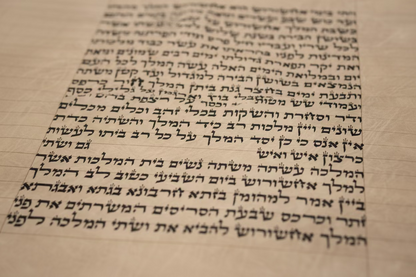 כשבת המלך אחשורוש
בשושן הבירה בשנת שלוש למלכו עשה משתה
לכל שריו ועבדיו חיל פרס ומדי הפרתמים ושרי
המדינות לפניו בהראתו את עשר כבוד מלכותו
ואת יקר תפארת גדולתו ימים רבים שמונים ומאת
יום ובמלואת הימים האלה עשה המלך לכל העם
הנמצאים בשושן הבירה למגדול ועד קטן משתה
שבעת ימים בחצר גנת ביתן המלך
ועמודי שש מטות
ודר וסחרת והשקות בכלי זהב וכלים מכלים
שונים ויין מלכות רב כיד המלך והשתיה כדת
אין אנס כי כן יסד המלך על כל רב ביתו לעשות
כרצון איש ואיש גם ושתי
המלכה עשתה משתה נשים בית המלכות אשר
למלך אחשורוש ביום השביעי כטוב לב המלך
ביין אמר למהומן בזתא חרבונא בגתא ואבגתא
זתר וכרכס שבעת הסריסים המשרתים את פני
המלך אחשורוש להביא את ושתי המלכה לפני